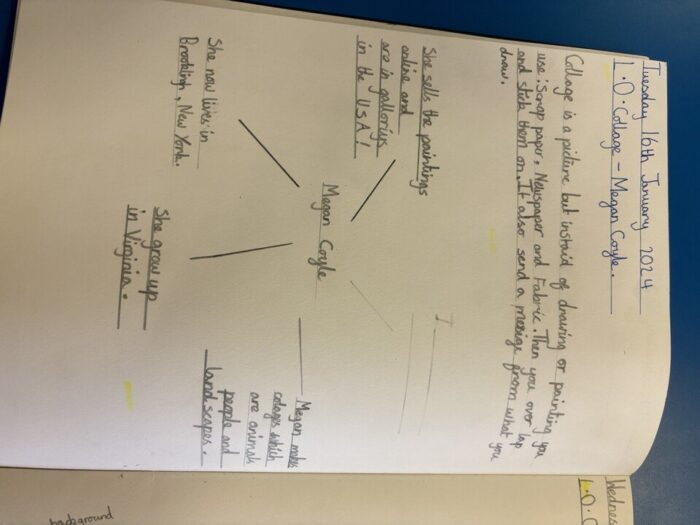 Tuesday 16th January 2024
L.O. Collage - Megan Coyle.
Collage is a picture but instaid of drawing or painting you
use: Scrap paper, Newspaper and Fabric. Then you over lap
and stick them on. It also send a mesige from what you
draw.
She sells the paintings
online and
are in galloriys
in the USA!
I
She now lives in
Brooklingh, New York.
Megan Coyle
She grow up
in Virginia.
Megan makes
colages which
are animals
people and
landscapes.
Wednes
L.O. C
background